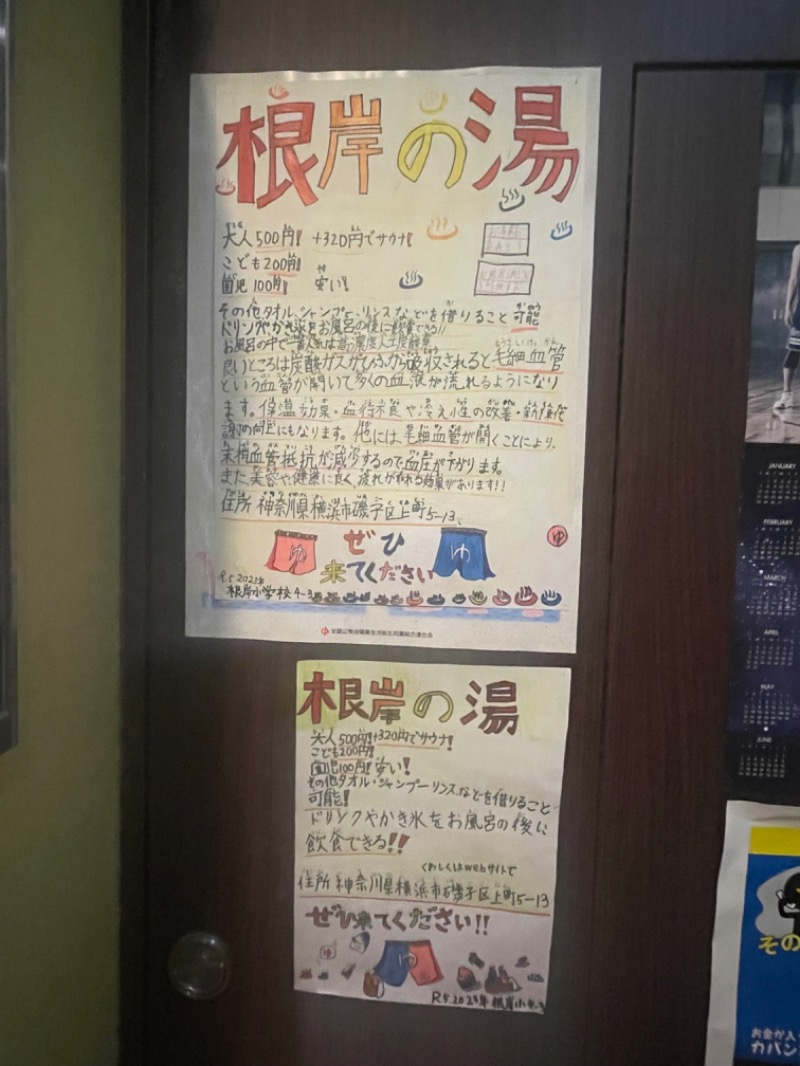 根岸の湯
大人500円! +320円でサウナ!
こども200円!
幼児100円! 安い!
その他タオル、シャンプー、リンスなどを借りること可能
ドリンクやかき氷をお風呂の後に飲食できる!!
お風呂の中で一番人気は高濃度人工炭酸泉
良いところは炭酸ガスがひふから吸収されると毛細血管
という血管が開いて多くの血液が流れるようになり
ます。保温効果・血行不良や冷え性の改善・新陳代
謝の向上にもなります。他には、毛細血管が開くことにより、
末梢血管抵抗が減少するので血圧が下がります。
また、美容や健康に良く、疲れが取れる効果があります!!
住所 神奈川県横浜市磯子区上町5-13、
ぜひ
来てください
ゆ
ゆ
ゆ
R.5 2023年
根岸小学校 4-3
根岸の湯
大人500円!+320円でサウナ!
こども200円!
幼児100円! 安い!
その他タオル・シャンプーリンスなどを借りること
可能!
ドリンクやかき氷をお風呂の後に
飲食できる!!
くわしくはwebサイトで
住所 神奈川県横浜市磯子区上町5-13
ぜひ来てください!!
ゆ
ゆ
R5.2023年 根岸小
JANUARY
FEBRUARY
MARCH
APRIL
MAY
JUNE
その
お金が入
カバン